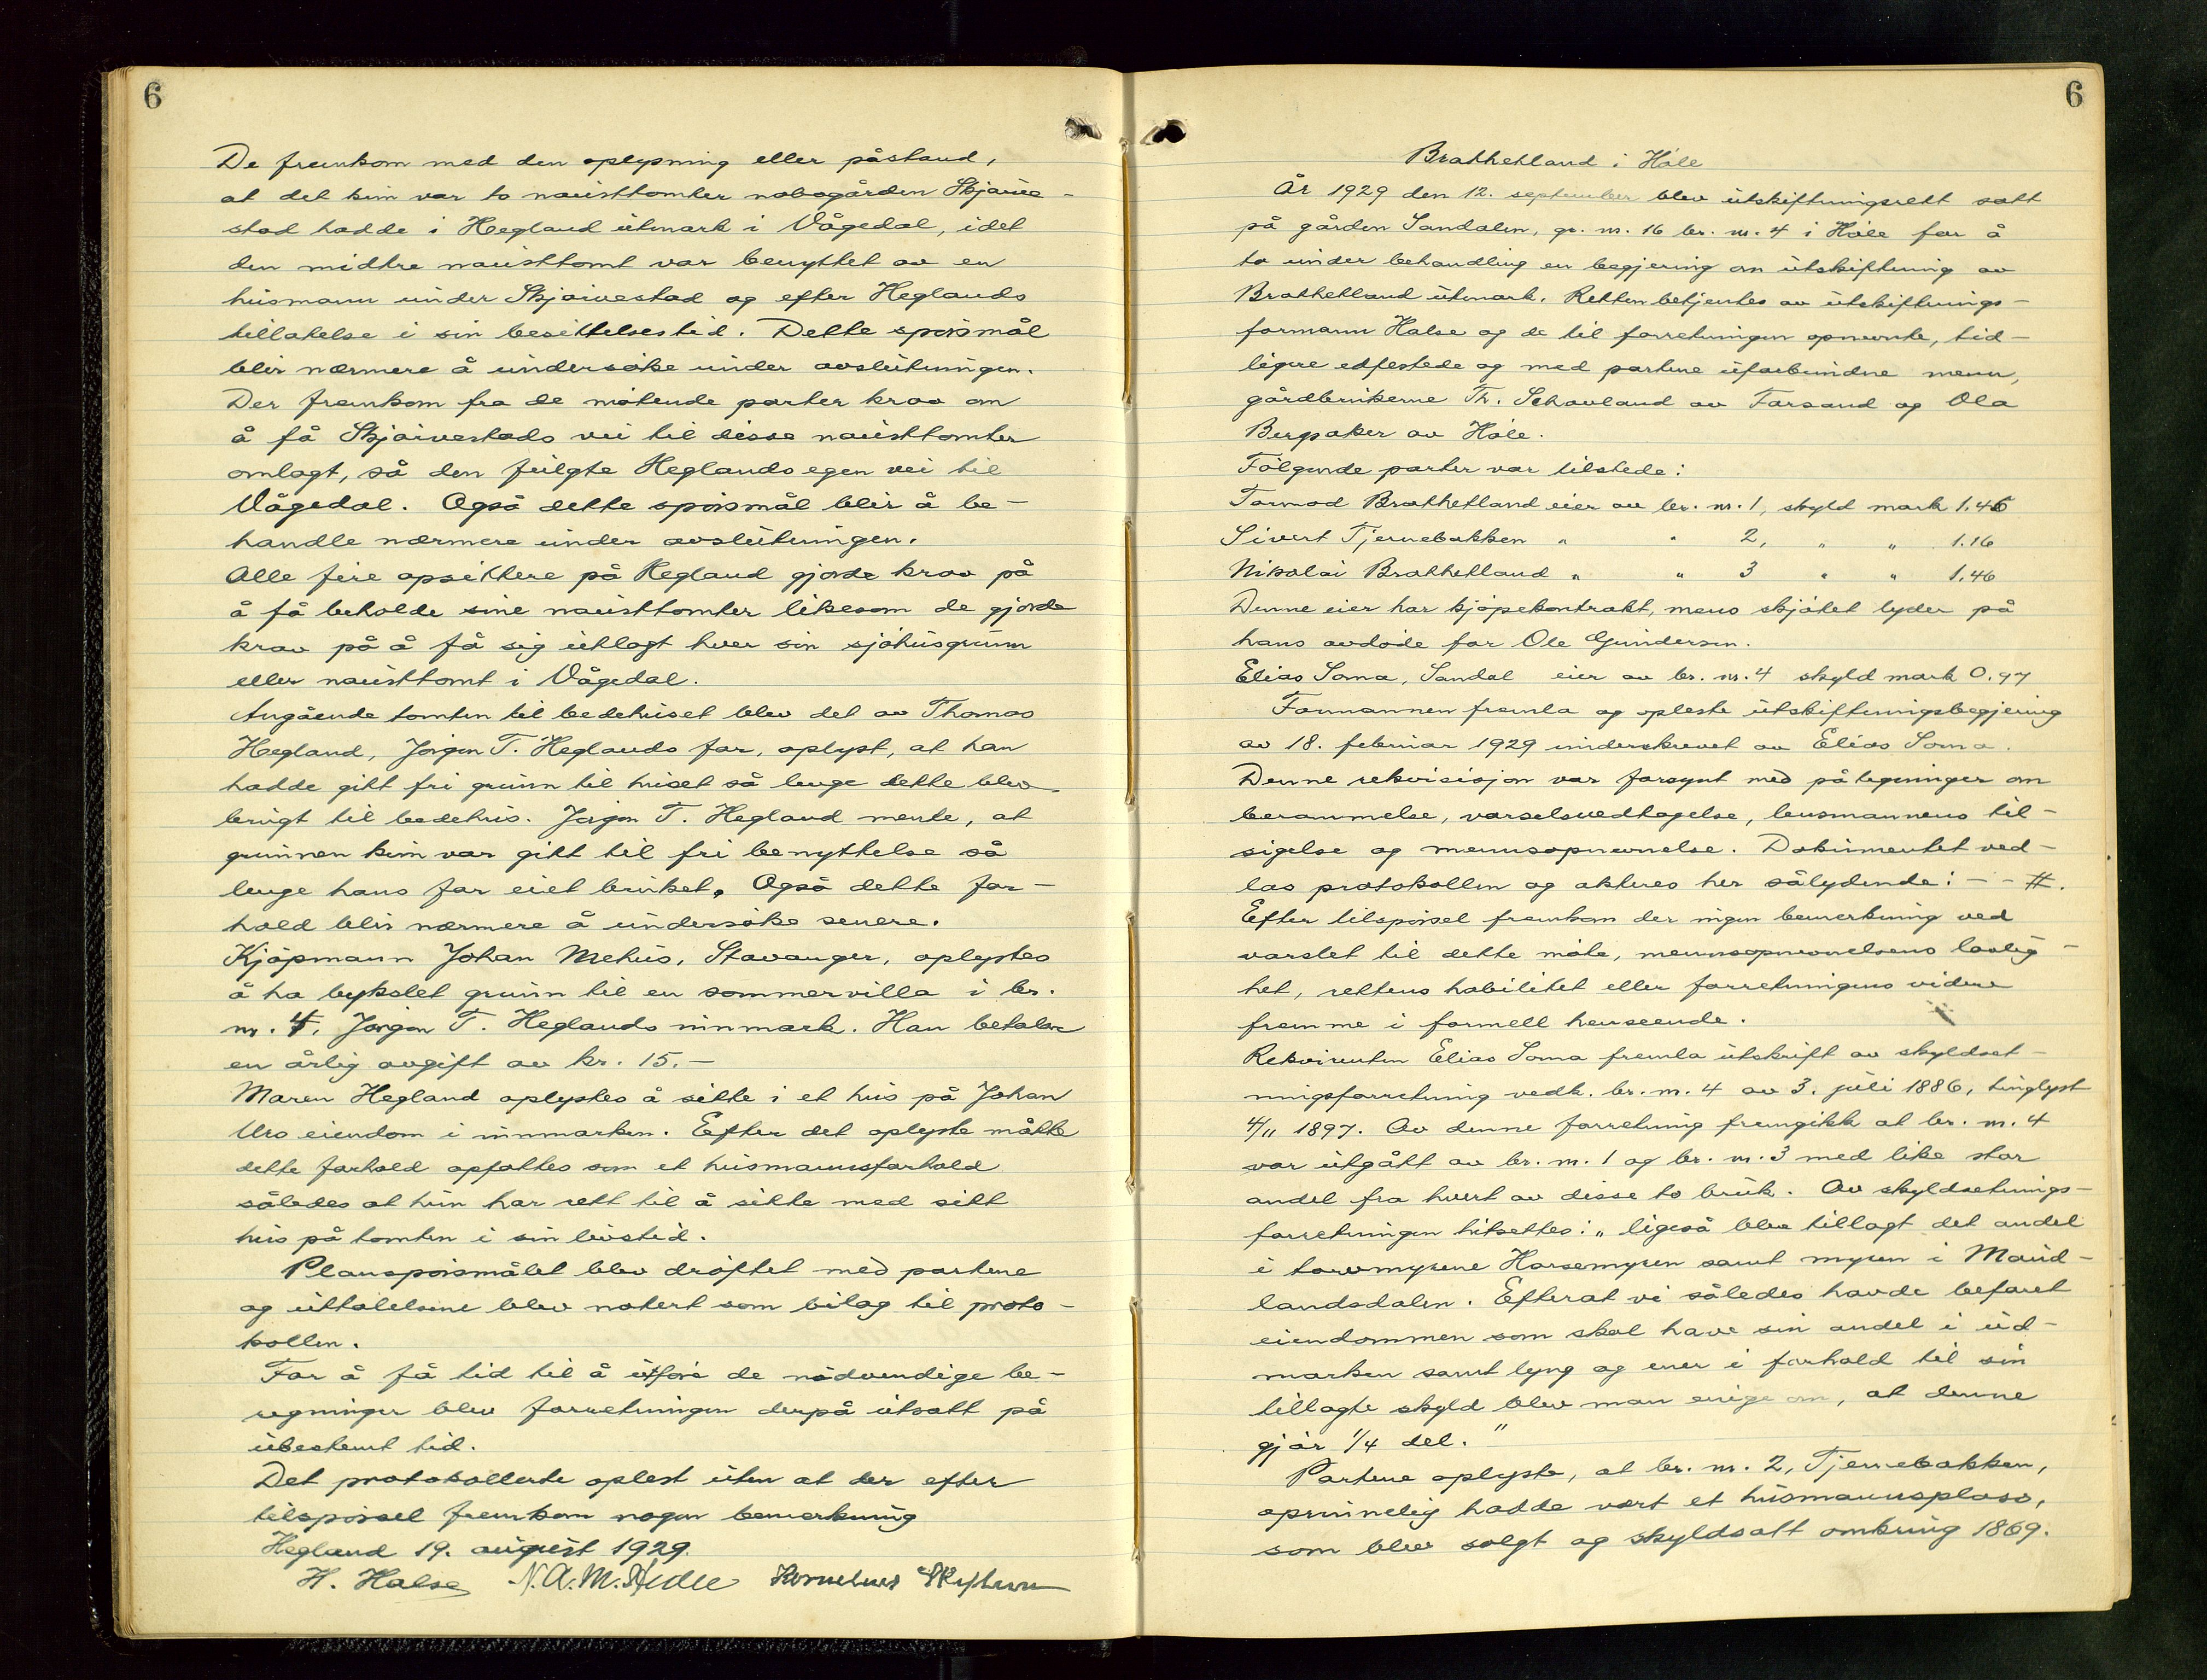 6
De fremkom med den oplysning eller påstand,
at det kun var to nausttomter nabogården Skjæve-
stad hadde i Hegland utmark i Vågedal, idet
den midtre nausttomt var benyttet av en
husmann under Skjævestad og efter Heglands
tillatelse i sin besittelsestid. Dette spørsmål
blir nærmere å undersøke under avslutningen.
Der fremkom fra de møtende parter krav om
å få Skjævestads vei til disse nausttomter
omlagt, så den fulgte Heglands egen vei til
Vågedal. Også dette spørsmål blir å be-
handle nærmere under avslutningen.
Alle fire opsittere på Hegland gjorde krav på
å få beholde sine nausttomter likesom de gjorde
krav på å få sig utlagt hver sin sjøhusgrunn
eller nausttomt i Vågedal.
Angående tomten til bedehuset blev det av Thomas
Hegland, Jørgen T. Heglands far, oplyst, at han
hadde gitt fri grunn til huset så lenge dette blev
brugt til bedehus. Jørgen T. Hegland mente, at
grunnen kun var gitt til fri benyttelse så
lenge hans far eiet bruket. Også dette for-
hold blir nærmere å undersøke senere.
Kjøpmann Johan Mehus, Stavanger, oplystes
å ha bykslet grunn til en sommervilla i br.
nr. 4, Jørgen T. Heglands innmark. Han betaler
en årlig avgift av kr. 15.-
Maren Hegland oplystes å sitte i et hus på Johan
Urs eiendom i innmarken. Efter det oplyste måtte
dette forhold opfattes som et husmannsforhold
således at hun har rett til å sitte med sitt
hus på tomten i sin livstid.
Planspørsmålet blev drøftet med partene
og uttalelsene blev notert som bilag til proto-
kollen.
For å få tid til å utføre de nødvendige be-
regninger blev forretningen derpå utsatt på
ubestemt tid.
Det protokollerte oplest uten at der efter
tilspørsel fremkom nogen bemerkning
Hegland 19. august 1929.
H. Halse N. A. M. Kornelius
6
Brattetland i Høle
År 1929 den 12. september blev utskiftningsrett satt
på gården Sandalen, gr. nr. 16 br. nr. 4 i Høle for å
ta under behandling en begjering om utskiftning av
Brattetland utmark. Retten betjentes av utskiftnings-
formann Halse og de til forretningen opnevnte, tid-
ligere edfestede og med partene uforbundne menn,
gårdbrukerne Th. Schavland av Forsand og Ola
Bergsaker av Høle.
Følgende parter var tilstede:
Tormod Brattetland eier av br. nr. 1, skyld mark 1.46
Sivert Tjernebakken " " 2, " " 1.16
Nikolai Brattetland " " 3 " " 1.46
Denne eier har kjøpekontrakt, mens skjøtet lyder på
hans avdøde far Ole Gundersen.
Elias Soma, Sandal eier av br. nr. 4 skyld mark 0.97
Formannen fremla og opleste utskiftningsbegjering
av 18. februar 1929 underskrevet av Elias Soma.
Denne rekvisisjon var forsynt med påtegninger om
berammelse, varselsvedtagelse, lensmannens til-
sigelse og mennsopnevnelse. Dokumentet ved-
las protokollen og akteres her sålydende: - - #.
Efter tilspørsel fremkom der ingen bemerkning ved
varslet til dette møte, mennsopnevnelsens lovlig-
het, rettens habilitet eller forretningens videre
fremme i formell henseende.
Rekvirenten Elias Soma fremla utskrift av skyldset-
ningsforretning vedk. br. nr. 4 av 3. juli 1886, tinglyst
4/11 1897. Av denne forretning fremgikk at br. nr. 4
var utgått av br. nr. 1 og br. nr. 3 med like stor
andel fra hvert av disse to bruk. Av skyldsetnings-
forretningen hitsettes: "ligeså blev tillagt det andel
i torvmyrene Horsemyren samt myren i Maud-
landsdalen. Efterat vi således havde befaret
eiendommen som skal have sin andel i ud-
marken samt lyng og ener i forhold til sin
tillagte skyld blev man enige om, at denne
gjør 1/4 del."
Partene oplyste, at br. nr. 2, Tjernebakken,
oprinnelig hadde vært et husmannsplass,
som blev solgt og skyldsatt omkring 1869.